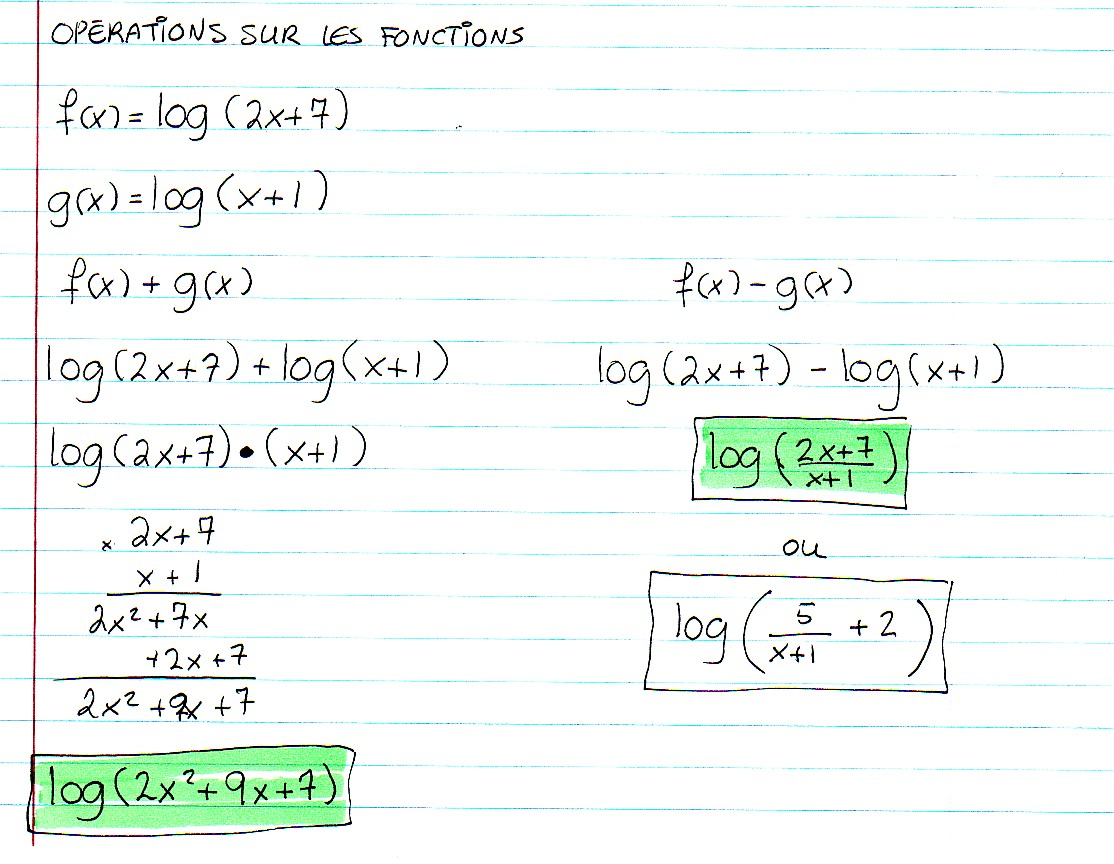 OPÉRATIONS SUR LES FONCTIONS
f(x) = log (2x+7)
g(x) = log (x+1)
f(x) + g(x)
log (2x+7) + log (x+1)
log (2x+7) • (x+1)
x 2x+7
x + 1
2x² + 7x
+2x +7
2x² +9x +7
log (2x²+9x+7)
f(x) - g(x)
log (2x+7) - log (x+1)
log ( (2x+7)/(x+1) )
ou
log ( 5/(x+1) + 2 )